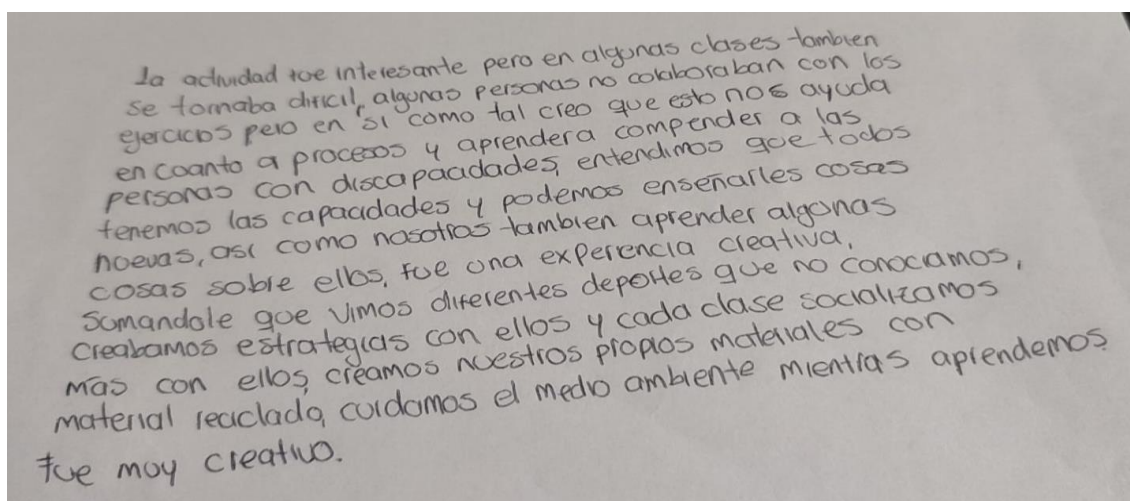 La actividad fue interesante pero en algunas clases tambien
se tornaba dificil, algunas personas no colaboraban con los
ejercicios pero en si como tal creo que esto nos ayuda
en cuanto a procesos y aprender a compender a las
personas con discapacidades, entendimos que todos
tenemos las capacidades y podemos enseñarles cosas
nuevas, asi como nosotros tambien aprender algunas
cosas sobre ellos, fue una experencia creativa,
sumandole que vimos diferentes deportes que no conociamos,
creabamos estrategias con ellos y cada clase socializamos
mas con ellos, creamos nuestros propios materiales con
material reciclado, cuidamos el medio ambiente mientras aprendemos
fue muy creativo.